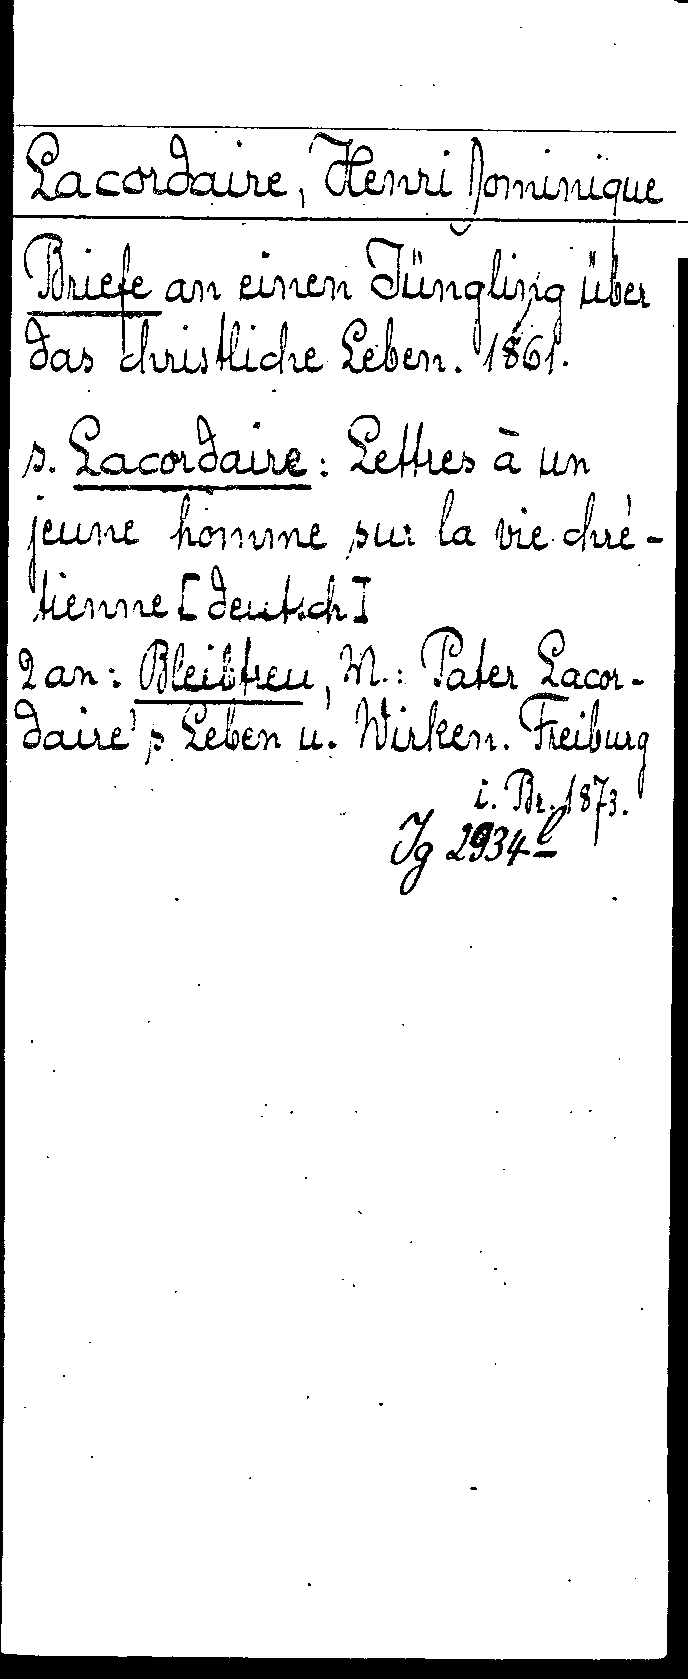 Lacordaire, Henri Dominique
Briefe an einen Jüngling über
das christliche Leben. 1861.
s. Lacordaire: Lettres à un
jeune homme sur la vie chré-
tienne [deutsch]
2 an: Bleibtreu, M.: Pater Lacor-
daire's Leben u. Wirken. Freiburg
i. Br. 1873.
Jg 2934 l